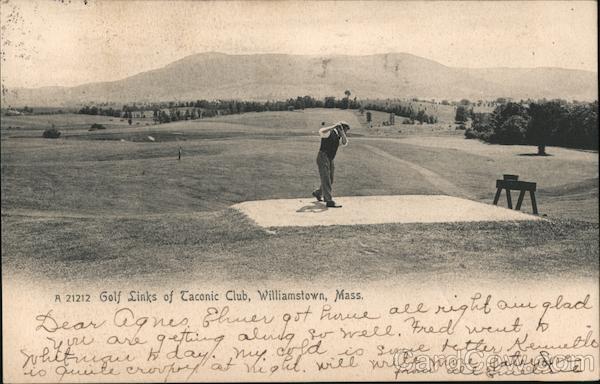 A 21212 Golf Links of Taconic Club, Williamstown, Mass.
Dear Agnes, Elmer got home all right am glad
you are getting along so well. Fred went to
Whitman today. My cold is some better Kenneth
is quite croupy at night. will write more
from all
CardCow.com